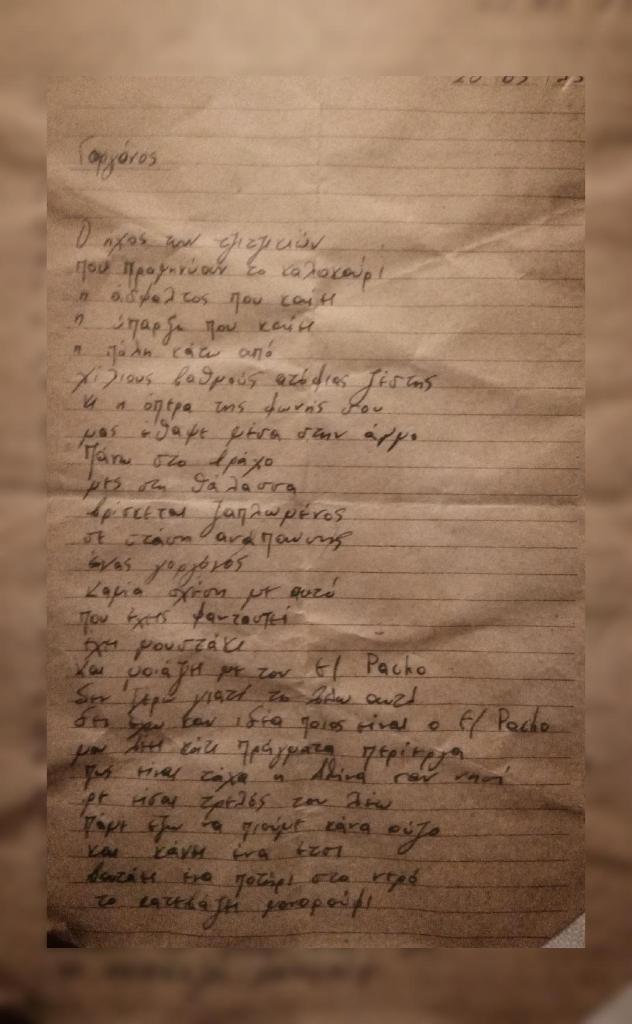 Γοργόνος
Ο ηχος των τζιτζικιών
που προμηνύουν το καλοκαίρι
η άσφαλτος που καίει
η ύπαρξη που καίει
η πόλη κάτω από
χίλιους βαθμούς ατόφιας ζέστης
κι η όπερα της φωνής σου
μας έθαψε μέσα στην άμμο
Πάνω στο βράχο
μες στη θάλασσα
βρίσκεται ξαπλωμένος
σε στάση ανάπαυσης
ένας γοργόνος
καμία σχέση με αυτό
που έχεις φανταστεί
έχει μουστάκι
και μοιάζει με τον El Pacho
δεν ξέρω γιατί το λέω αυτό
δεν έχω καν ιδέα ποιος είναι ο El Pacho
μου λέει κάτι πράγματα περίεργα
πως είναι τάχα η Αθήνα σαν νησί
ρε εισαι τρελός του λέω
πάμε εξω να πιούμε κάνα ούζο
και κάνει ένα έτσι
βουτάει ένα ποτήρι στο νερό
το κατεβάζει μονορούφι